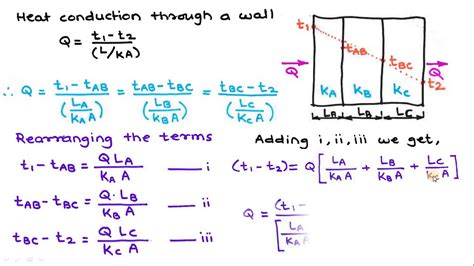 Heat conduction through a wall
Q = t₁-t₂ / (L/KA)
∴ Q = t₁-tAB / (LA / KAA) = tAB-tBC / (LB / KBA) = tBC-t₂ / (LC / KCA)
t₁
tAB
tBC
t₂
Q
Q
KA KB KC
LA LB LC
Rearranging the terms
t₁-tAB = QLA / KAA — i
tAB-tBC = Q·LB / KBA — ii
tBC-t₂ = QLC / KCA — iii
Adding i, ii, iii we get,
(t₁-t₂) = Q[LA / KAA + LB / KBA + LC / KCA]
Q = (t₁- / [LA / KAA